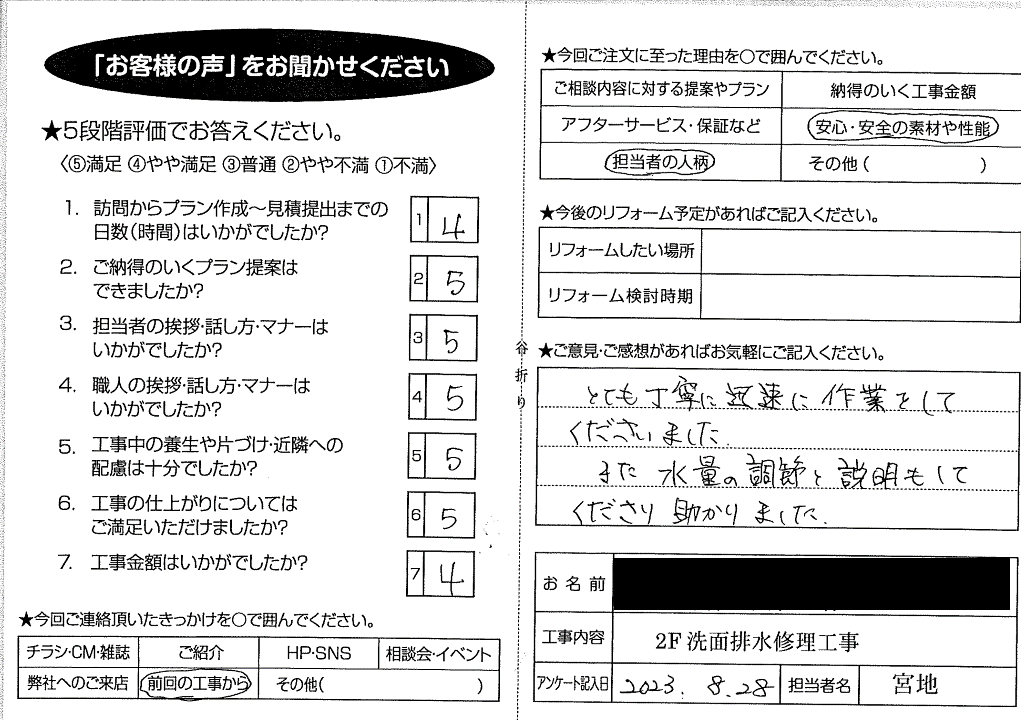 「お客様の声」をお聞かせください
★5段階評価でお答えください。
〈⑤満足 ④やや満足 ③普通 ②やや不満 ①不満〉
1. 訪問からプラン作成～見積提出までの
日数(時間)はいかがでしたか?
1 4
2. ご納得のいくプラン提案は
できましたか?
2 5
3. 担当者の挨拶・話し方・マナーは
いかがでしたか?
3 5
4. 職人の挨拶・話し方・マナーは
いかがでしたか?
4 5
5. 工事中の養生や片づけ・近隣への
配慮は十分でしたか?
5 5
6. 工事の仕上がりについては
ご満足いただけましたか?
6 5
7. 工事金額はいかがでしたか?
7 4
★今回ご連絡頂いたきっかけを○で囲んでください。
チラシ・CM・雑誌 ご紹介 HP・SNS 相談会・イベント
弊社へのご来店 前回の工事から その他( )
谷折り
★今回ご注文に至った理由を○で囲んでください。
ご相談内容に対する提案やプラン 納得のいく工事金額
アフターサービス・保証など 安心・安全の素材や性能
担当者の人柄 その他( )
★今後のリフォーム予定があればご記入ください。
リフォームしたい場所
リフォーム検討時期
★ご意見・ご感想があればお気軽にご記入ください。
とても丁寧に迅速に作業をして
くださいました.
また水量の調節と説明もして
くださり助かりました.
お名前
工事内容 2F洗面排水修理工事
アンケート記入日 2023. 8.28 担当者名 宮地